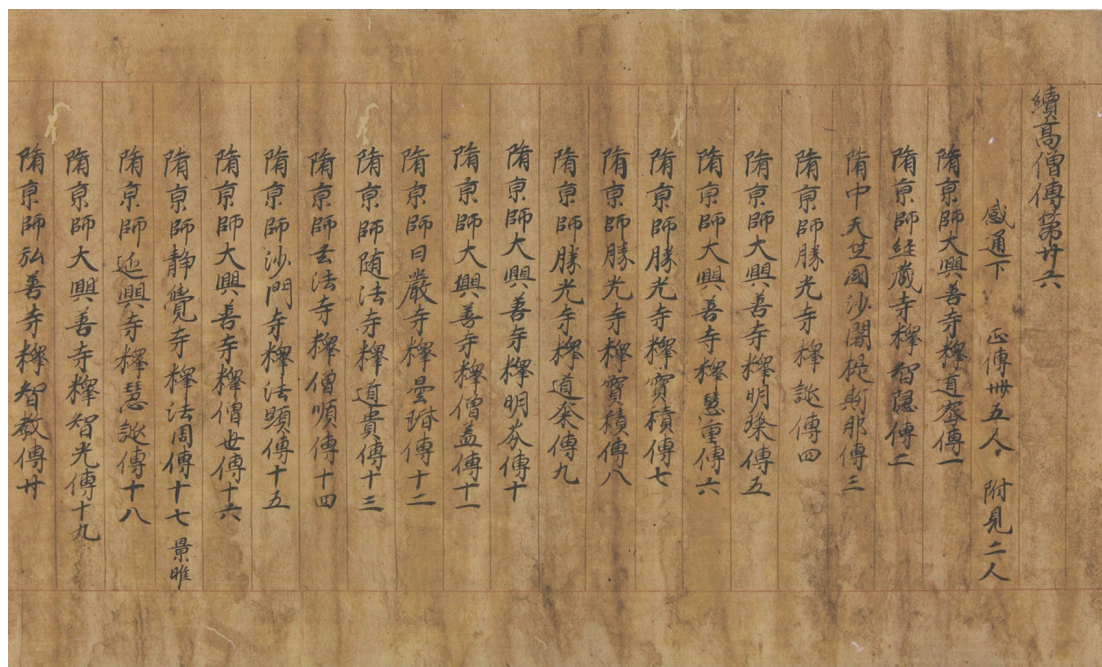 續高僧傳第廿六
感通下 正傳卌五人 附見二人
隋京師大興善寺釋道密傳一
隋京師經藏寺釋智隱傳二
隋中天竺國沙門闍提斯那傳三
隋京師勝光寺釋誕傳四
隋京師大興善寺釋明璨傳五
隋京師大興善寺釋慧重傳六
隋京師勝光寺釋寶積傳七
隋京師勝光寺釋寶積傳八
隋京師勝光寺釋道粲傳九
隋京師大興善寺釋明芬傳十
隋京師大興善寺釋僧盖傳十一
隋京師日嚴寺釋曇瑎傳十二
隋京師随法寺釋道貴傳十三
隋京師玄法寺釋僧順傳十四
隋京師沙門寺釋法顯傳十五
隋京師大興善寺釋僧世傳十六
隋京師靜覺寺釋法周傳十七 景暉
隋京師延興寺釋慧誕傳十八
隋京師大興善寺釋智光傳十九
隋京師弘善寺釋智教傳廿